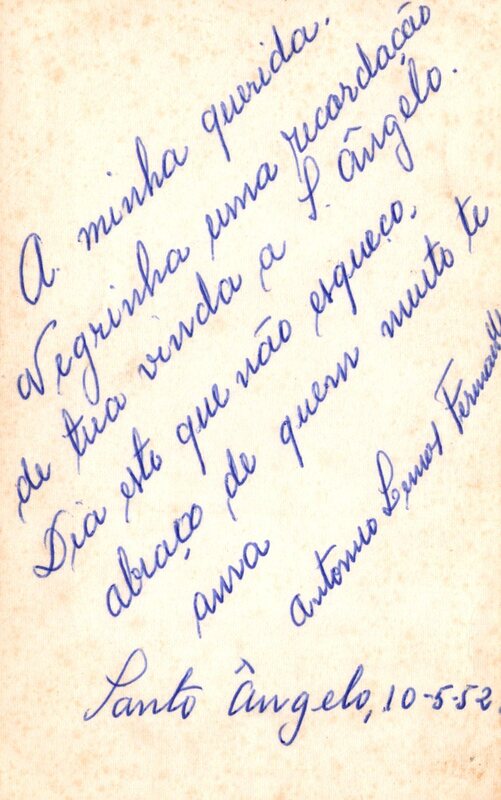 A minha querida.
Negrinha uma recordação
de tua vinda a S. Ângelo.
Dia esto que não esqueço,
abraço de quem muito te
ama
Antonio Lemos
Santo Ângelo, 10-5-52.